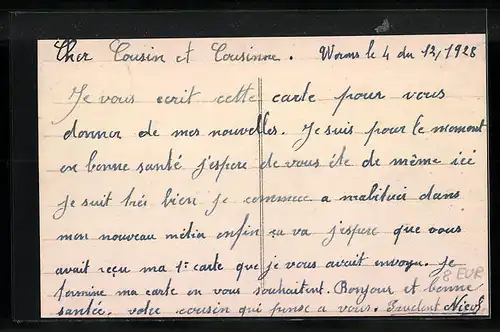 Cher Cousin et Cousinne. Worms le 4 du 12/1928
Je vous ecrit cette carte pour vous
donner de mes nouvelles. Je suis pour le moment
en bonne santé j'espere de vous éte de même ici
je suit tré bien je commece a m'abituéi dans
mon nouveau métier enfin sa va j'espere que vous
avait reçu ma 1e carte que je vous avait envoyu. Je
termine ma carte en vous souhaitent. Bonjour et bonne
santée. votre cousin qui pense a vous. Prudent Nicol
8 EUR